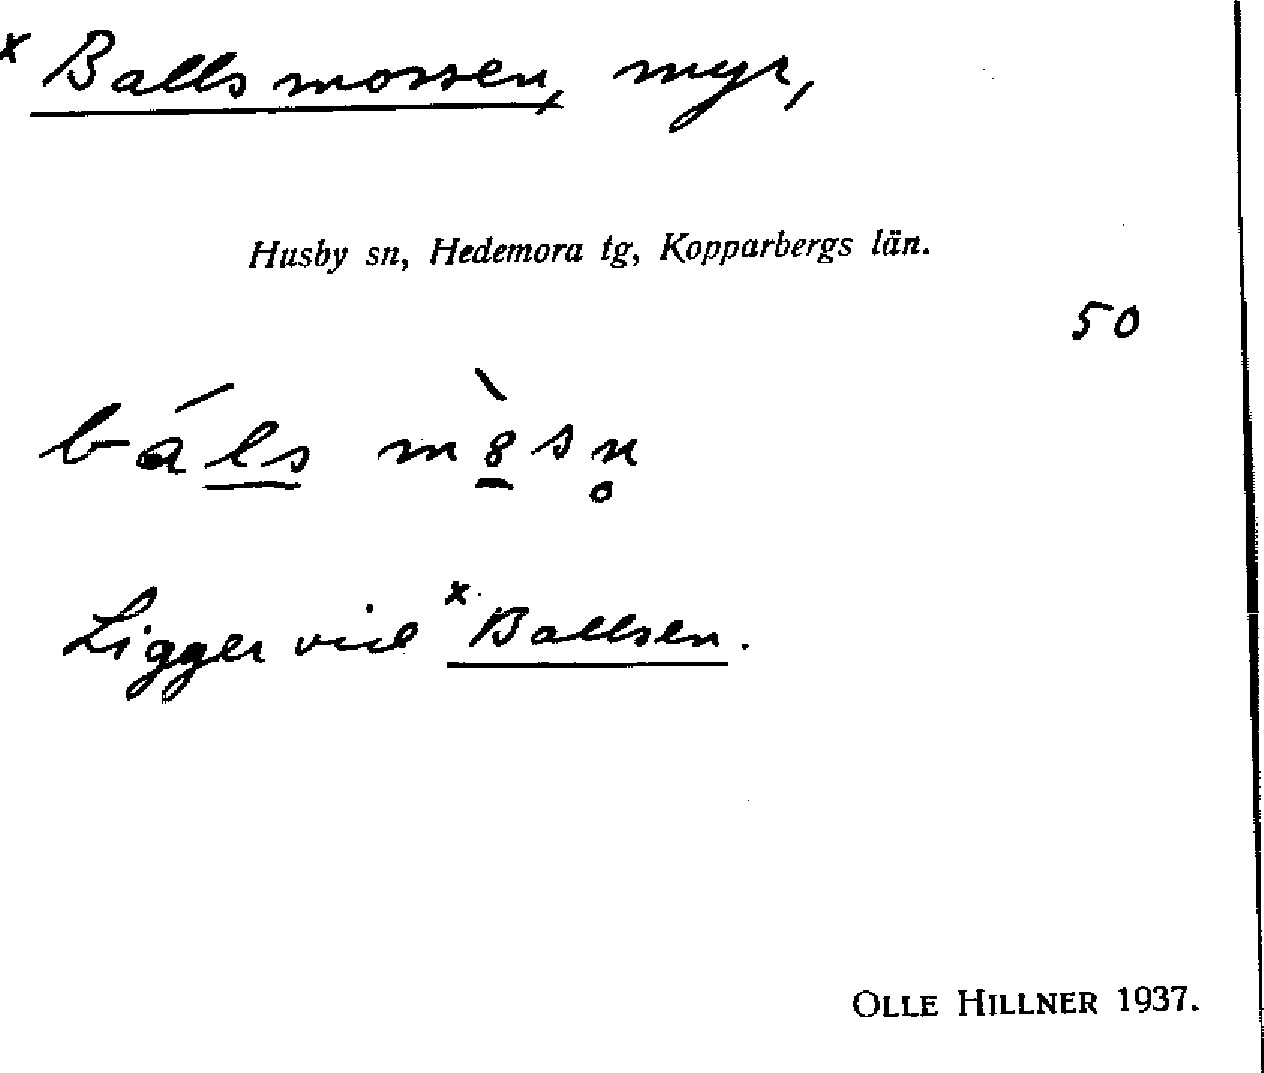 x Ballsmossen, myr,
Husby sn, Hedemora tg, Kopparbergs län.
50
báls mòsn̥
Ligger vid x Ballsen.
OLLE HILLNER 1937.